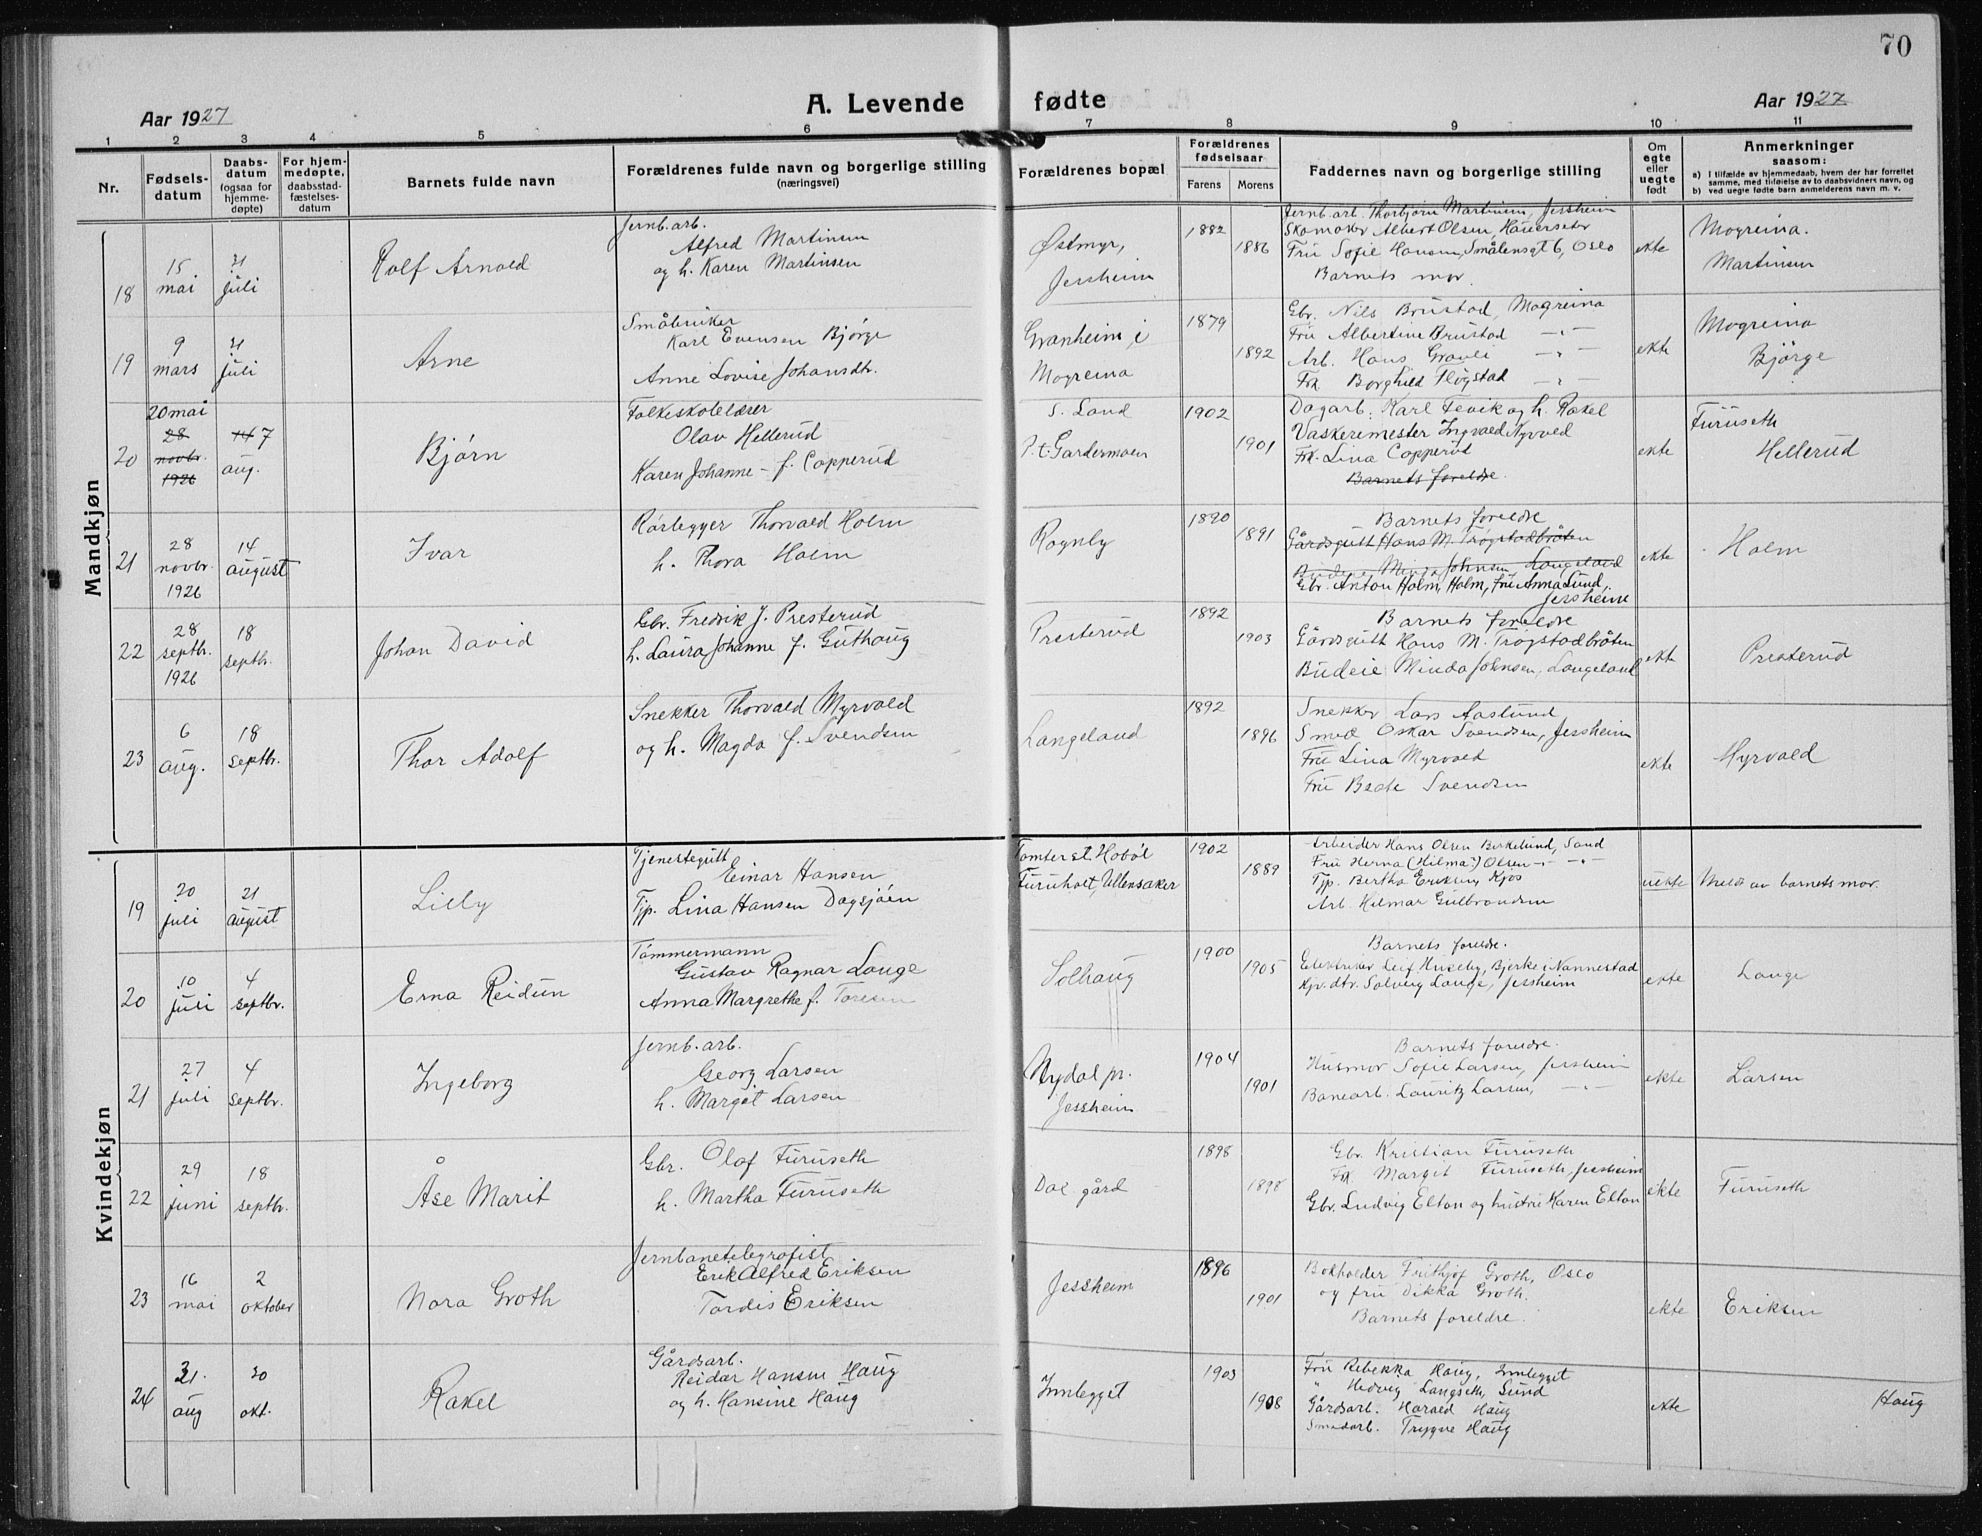 70
Aar 1927
A. Levende fødte
Aar 1927
1 2 3 4 5 6 7 8 9 10 11
Nr.
Fødsels-
datum
Daabs-
datum
(ogsaa for
hjemme-
døpte)
For hjem-
medøpte,
daabsstad-
fæstelses-
datum
Barnets fulde navn
Forældrenes fulde navn og borgerlige stilling
(næringsvei)
Forældrenes bopæl
Forældrenes
fødselsaar
Farens Morens
Faddernes navn og borgerlige stilling
Om
egte
eller
uegte
født
Anmerkninger
saasom:
a) I tilfælde av hjemmedaab, hvem der har forrettet
samme, med tilføielse av to daabsvidners navn, og
b) ved uegte fødte barn anmelderens navn m. v.
Mandkjøn
18
15
mai
31
juli
Rolf Arnold
Jernb.arb.
Alfred Martinsen
og h. Karen Martinsen
Østmyr,
Jessheim
1882
1886
Jernb.arb. Thorbjørn Martinsen, Jessheim
Skomaker Albert Olsen, Hauerseter
Fru Sofie Hansen, Smålensgt 6, Oslo
Barnets mor.
ekte
Mogreina.
Martinsen
19
9
mars
31
juli
Arne
Småbruker
Karl Evensen Bjørge
Anne Lovise Johansdtr.
Granheim i
Mogreina
1879
1892
Gbr. Nils Brustad, Mogreina
Fru Albertine Brustad -"-
Arb. Hans Gravli -"-
Frk. Borghild Fløgstad -"-
ekte
Mogreina
Bjørge
20
20 mai
28
novbr.
1926
14 7
aug.
Bjørn
Folkeskolelærer
Olav Hellerud
Karen Johanne - f. Copperud
S. Land
P.t. Gardermoen
1902
1901
Dagarb. Karl Fevik og h. Rakel
Vaskeremester Ingvald Nyrvold
Frk. Lina Copperud
Barnets foreldre.
ekte
Furuseth
Hellerud
21
28
novbr.
1926
14
august
Ivar
Rørlegger Thorvald Holm
h. Thora Holm
Rognly
1890
1891
Barnets foreldre
Gårdsgutt Hans M. Trøgstadbråten
Budeie Minda Johnsen, Langeland
Gbr. Anton Holm, Holm, Fru Anna Lund,
Jessheim
ekte
Holm
22
28
septbr.
1926
18
septbr.
Johan David
Gbr. Fredrik J. Presterud
h. Laura Johanne f. Guthaug
Presterud
1892
1903
Barnets foreldre
Gårdsgutt Hans M. Trøgstadbråten
Budeie Minda Johnsen, Langeland
ekte
Presterud
23
6
aug.
18
septbr.
Thor Adolf
Snekker Thorvald Myrvold
og h. Magda f. Svendsen
Langeland
1892
1896
Snekker Lars Aaslund
Smed Oskar Svendsen, Jessheim
Fru Lina Myrvold
Fru Beate Svendsen
ekte
Myrvold
Kvindekjøn
19
20
juli
21
august
Lilly
Tjenestegutt
Einar Hansen
Tjp. Lina Hansen Dagsjøen
Tomter st. Hobøl
Furuholt, Ullensaker
1902
1889
Arbeider Hans Olsen Birkelund, Sand
Fru Herna (Hilma?) Olsen -"- -"-
Tjp. Bertha Eriksen Kjos
Arb. Hilmar Gulbrandsen
uekte
Meldt av barnets mor.
20
10
juli
4
septbr.
Erna Reidun
Tømmermann
Gustav Ragnar Lange
Anna Margrethe f. Toresen
Solhaug
1900
1905
Barnets foreldre.
Elektriker Leif Huseby, Bjerke i Nannestad
Kjv.dtr. Solveig Lange, Jessheim
ekte
Lange
21
27
juli
4
septbr.
Ingeborg
Jernb.arb.
Georg Larsen
h. Margit Larsen
Nydal pr.
Jessheim
1904
1901
Barnets foreldre.
Husmor Sofie Larsen, Jessheim
Banearb. Lauritz Larsen, -"-
ekte
Larsen
22
29
juni
18
septbr.
Åse Marit
Gbr. Olaf Furuseth
h. Martha Furuseth
Dal gård
1898
1898
Gbr. Kristian Furuseth
Frk. Margit Furuseth, Jessheim
Gbr. Ludvig Elton og hustru Karen Elton
ekte
Furuseth
23
16
mai
2
oktober
Nora Groth
Jernbanetelegrafist
Erik Alfred Eriksen
Tordis Eriksen
Jessheim
1896
1901
Bokholder Frithjof Groth, Oslo
og fru Dikka Groth.
Barnets foreldre.
ekte
Eriksen
24
21.
aug
30
okt.
Rakel
Gårdsarb.
Reidar Hansen Haug
og h. Hansine Haug
Innlegget
1903
1908
Fru Rebekka Haug, Innlegget
" Hedvig Langseth, Lund
Gårdsarb. Harald Haug
Trygve Haug
ekte
Haug